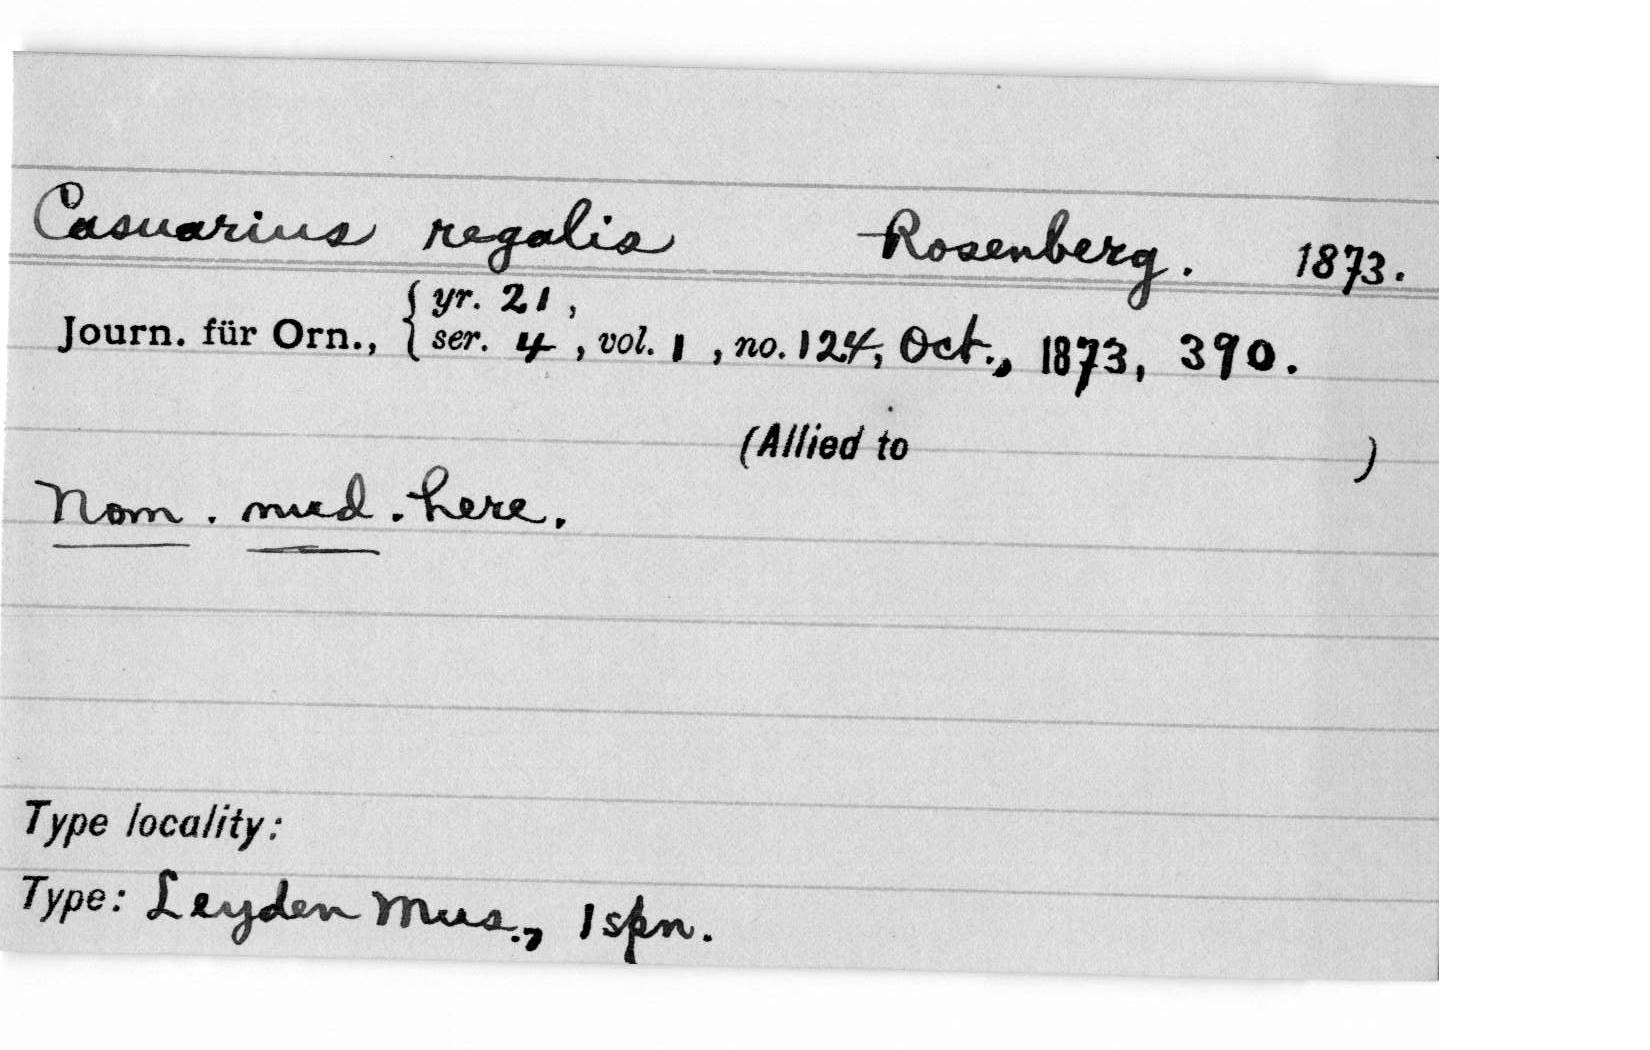 Casuarius regalis Rosenberg. 1873.
Journ. für Orn., { yr. 21,
ser. 4, vol. 1, no. 124, Oct., 1873, 390.
(Allied to )
Nom. nud. here.
Type locality:
Type: Leyden Mus., 1 spn.